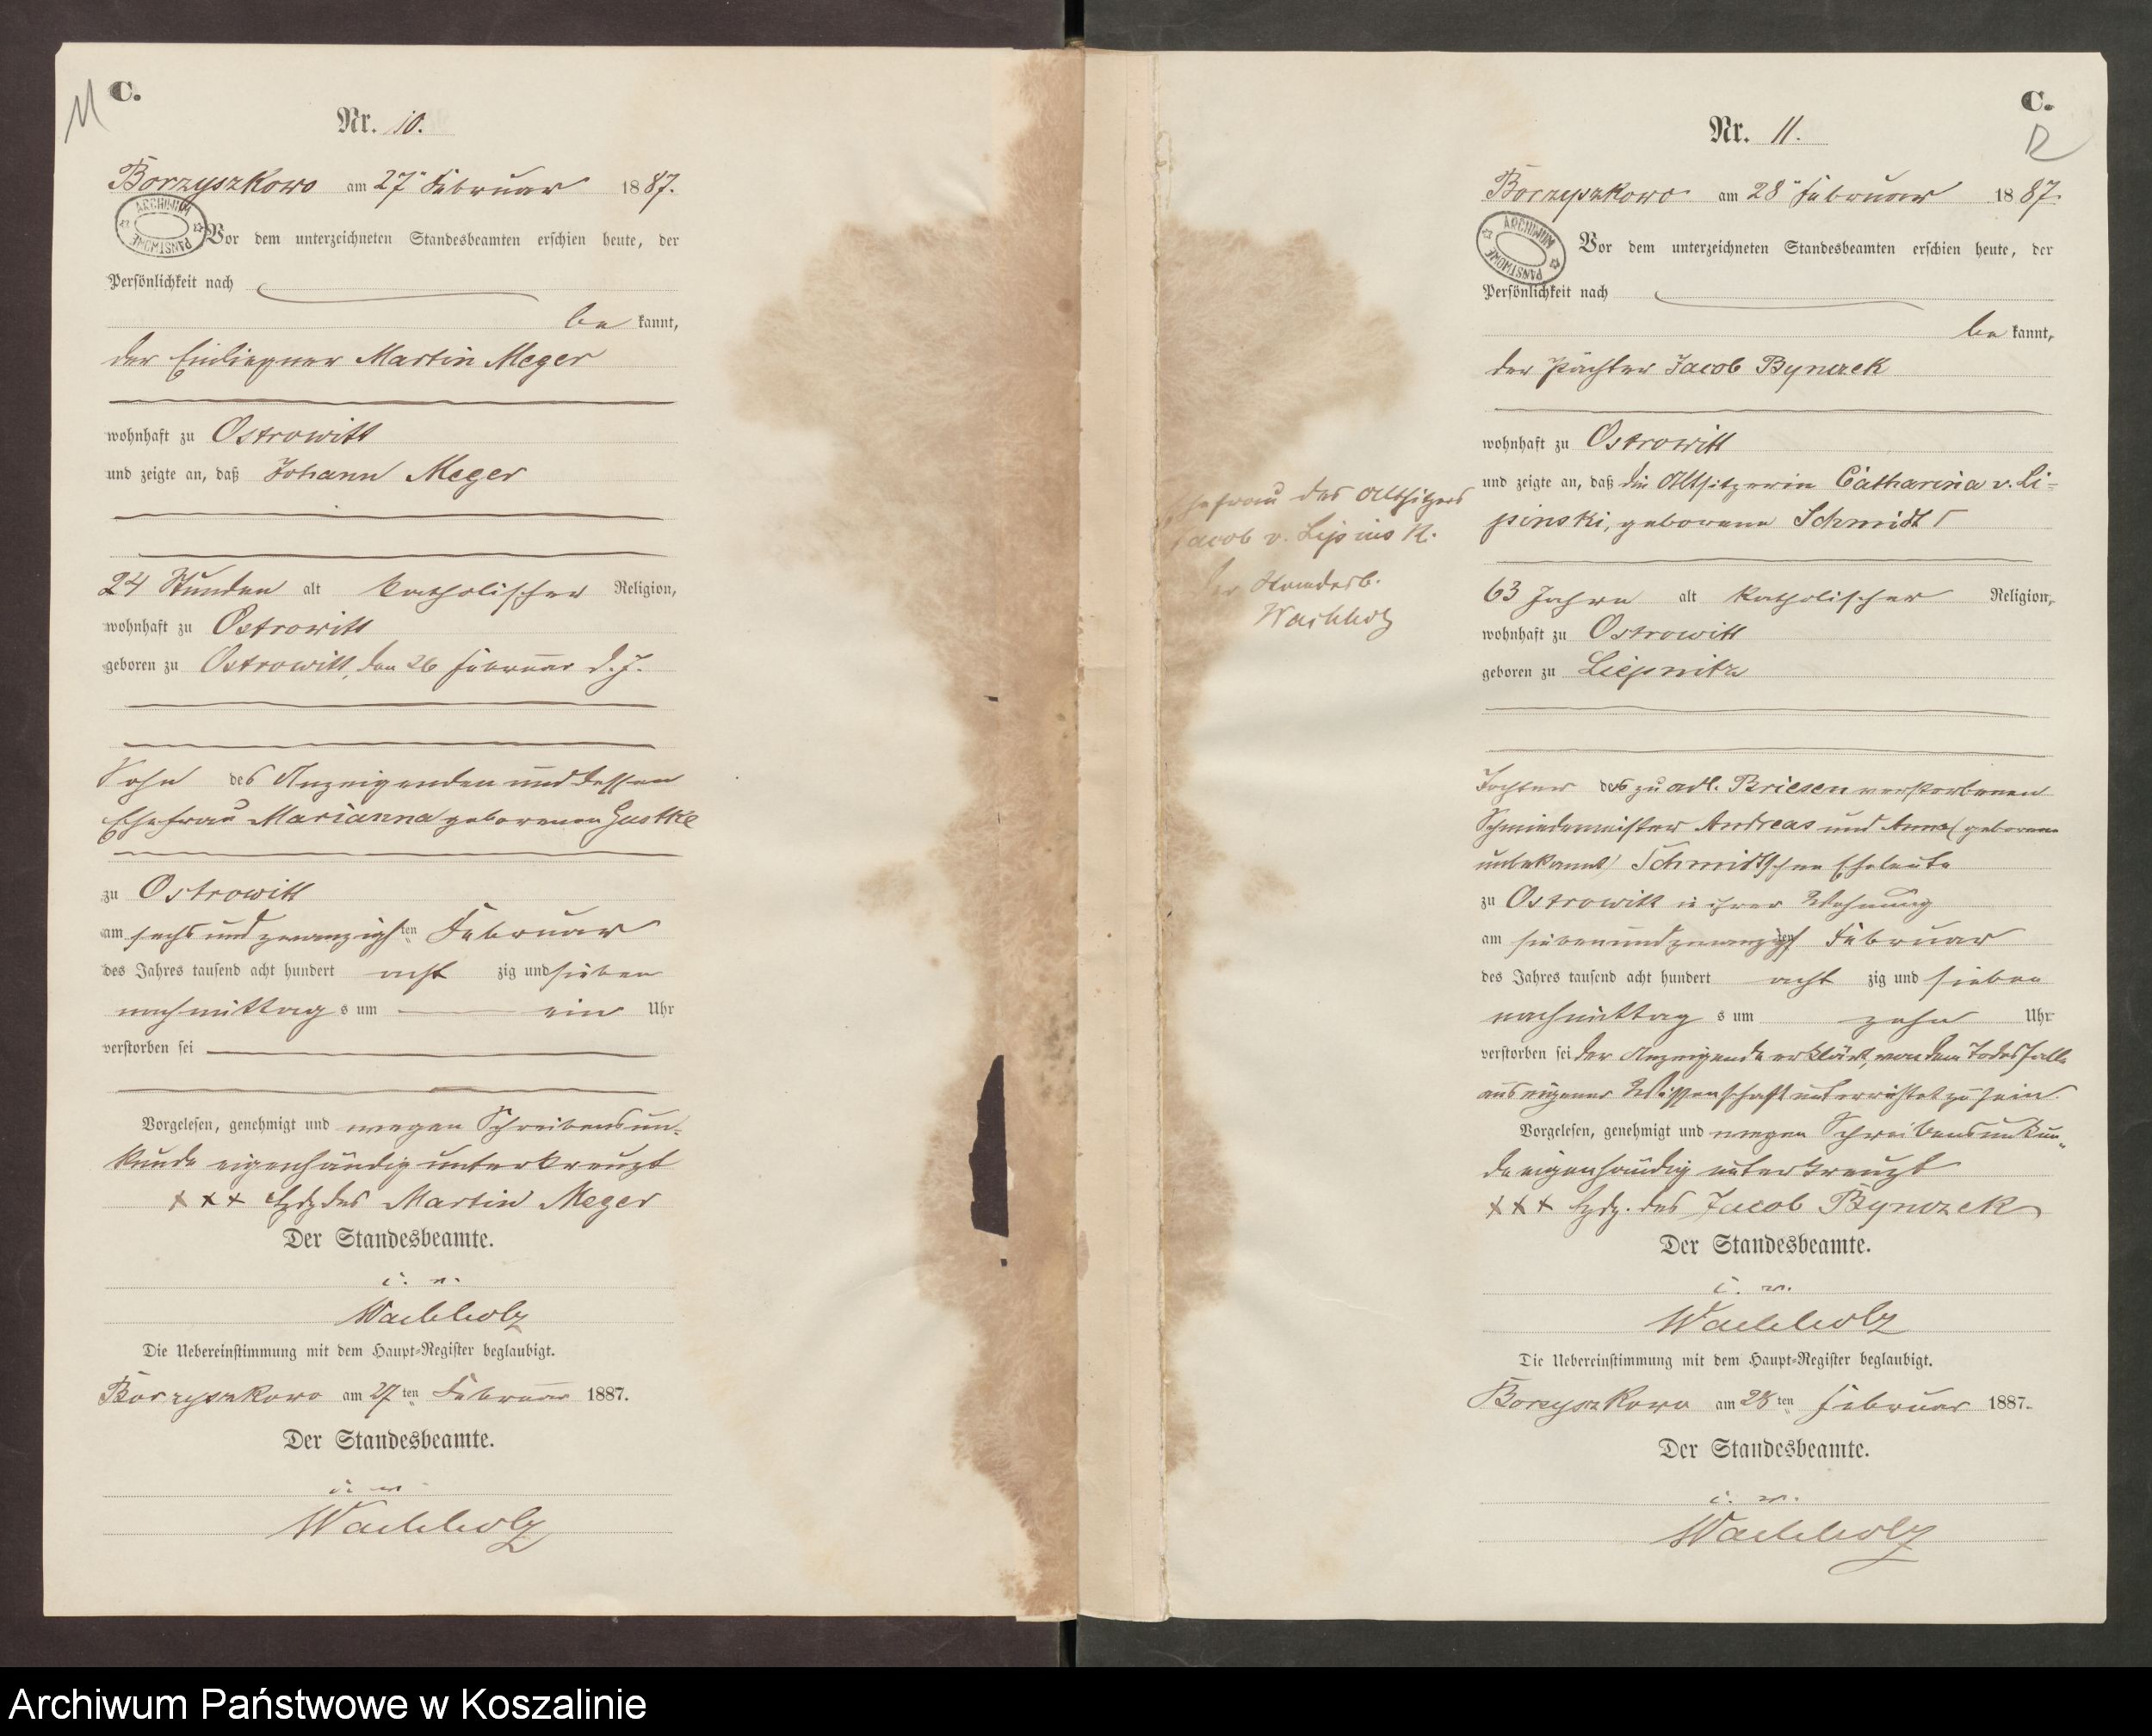 C.
11
Nr. 10.
Borzyszkowo am 27ᵗ Februar 1887.
ARCHIWUM PAŃSTWOWE
Vor dem unterzeichneten Standesbeamten erschien heute, der
Persönlichkeit nach
be kannt,
der Einliegner Martin Meger
wohnhaft zu Ostrowitt
und zeigte an, daß Johann Meger
24 Stunden alt katholischer Religion,
wohnhaft zu Ostrowitt
geboren zu Ostrowitt, den 26 Februar d. J.
Sohn des Anzeigenden und dessen
Ehefrau Marianna geborenen Gustke
zu Ostrowitt
am sechs und zwanzigsten Februar
des Jahres tausend acht hundert acht zig und sieben
nachmittag s um ein Uhr
verstorben sei
Vorgelesen, genehmigt und wegen Schreibensun-
kunde eigenhändig unterkreuzt
+++ Hdz des Martin Meger
Der Standesbeamte.
i. v.
Wachholz
Die Uebereinstimmung mit dem Haupt-Register beglaubigt.
Borzyszkowo am 27ten Februar 1887.
Der Standesbeamte.
i. v.
Wachholz
C.
12
Nr. 11.
Borzyszkowo am 28ᵗ Februar 1887.
ARCHIWUM PAŃSTWOWE
Vor dem unterzeichneten Standesbeamten erschien heute, der
Persönlichkeit nach
be kannt,
der Pächter Jacob Bynczek
wohnhaft zu Ostrowitt
und zeigte an, daß die Altsitzerin Catharina v. Li-
pinski, geborene Schmidt Γ
Ehefrau des Altsitzers
Jacob v. Lipinski.
Der Standesb.
Wachholz
63 Jahre alt katholischer Religion,
wohnhaft zu Ostrowitt
geboren zu Liepnitz
Tochter des zu adl. Briesen verstorbenen
Schmiedemeister Andreas und Anna (geborene
unbekannt) Schmidtschen Eheleute
zu Ostrowitt in ihrer Wohnung
am siebenundzwanzigsten Februar
des Jahres tausend acht hundert acht zig und sieben
nachmittag s um zehn Uhr
verstorben sei der Anzeigende erklärt, von dem Todesfalle
aus eigener Wissenschaft unterrichtet zu sein.
Vorgelesen, genehmigt und wegen Schreibensunkun-
de eigenhändig unterkreuzt
+++ Hdz. des Jacob Bynczek
Der Standesbeamte.
i. v.
Wachholz
Die Uebereinstimmung mit dem Haupt-Register beglaubigt.
Borzyszkowo am 28ten Februar 1887.
Der Standesbeamte.
i. v.
Wachholz
Archiwum Państwowe w Koszalinie